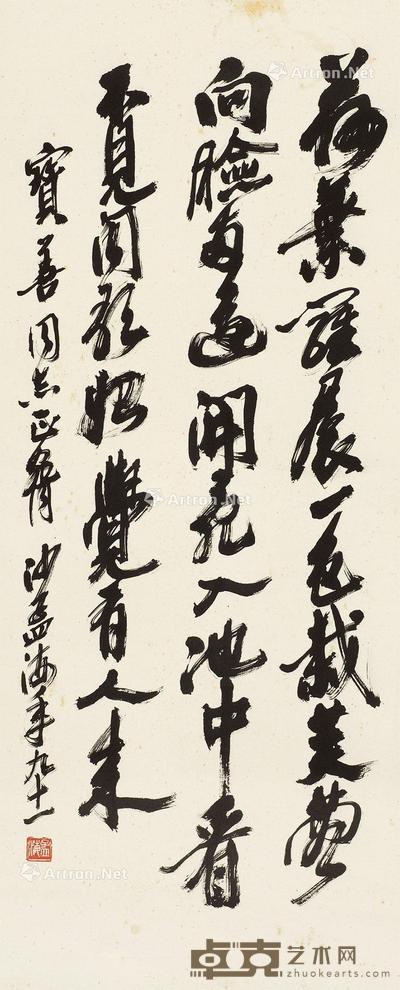 荷葉羅裠一色裁芙蓉
向臉兩邊開亂入池中看
不見聞歌始覺有人來
寶善同志正 沙孟海年九十一
Artron.Net
Artron.Net
Artron.Net
Artron.Net
Artron.Net
卓克艺术网
zhuokearts.com